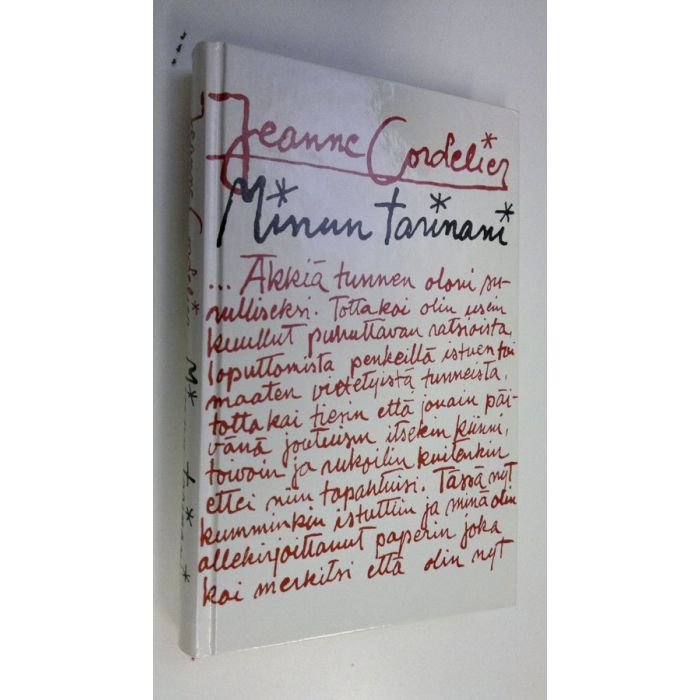 Jeanne Cordelier
Minun tarinani
... Äkkiä tunnen oloni su-
rulliseksi. Totta kai olin usein
kuullut puhuttavan ratsioista,
loputtomista penkeillä istuen tai
maaten vietetyistä tunneista,
totta kai tiesin että jonain päi-
vänä joutuisin itsekin kiinni,
toivoin ja rukoilin kuitenkin
ettei niin tapahtuisi. Tässä nyt
kumminkin istuttiin ja minä olin
allekirjoittanut paperin joka
kai merkitsi että olin nyt
Jeanne Cordelier Minun tarinani